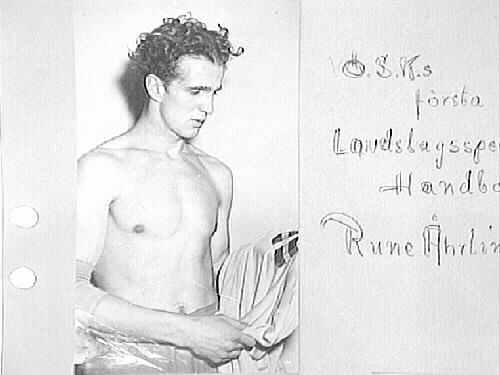 Ö.S.K.s
första
Landslagsspe
Handbo
Rune Åhrlin